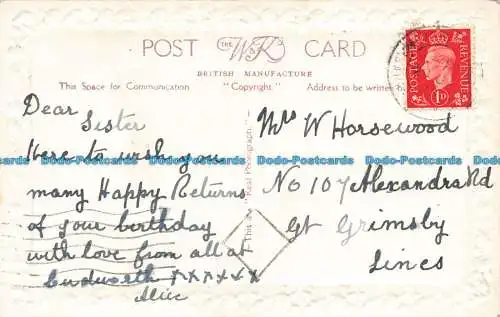 POST THE W&K CARD
BRITISH MANUFACTURE
This Space for Communication "Copyright" Address to be written
POSTAGE REVENUE
1D
Dear
Sister
Here to wish you
many Happy Returns
of your birthday
with love from all at
Cudworth xxxxxx
Alice
This is a "Real Photograph"
Mrs W Horsewood
No 107 Alexandra Rd
Gt Grimsby
Lincs
Dodo-Postcards Dodo-Postcards Dodo-Postcards Dodo-Postcards Dodo-Postcards